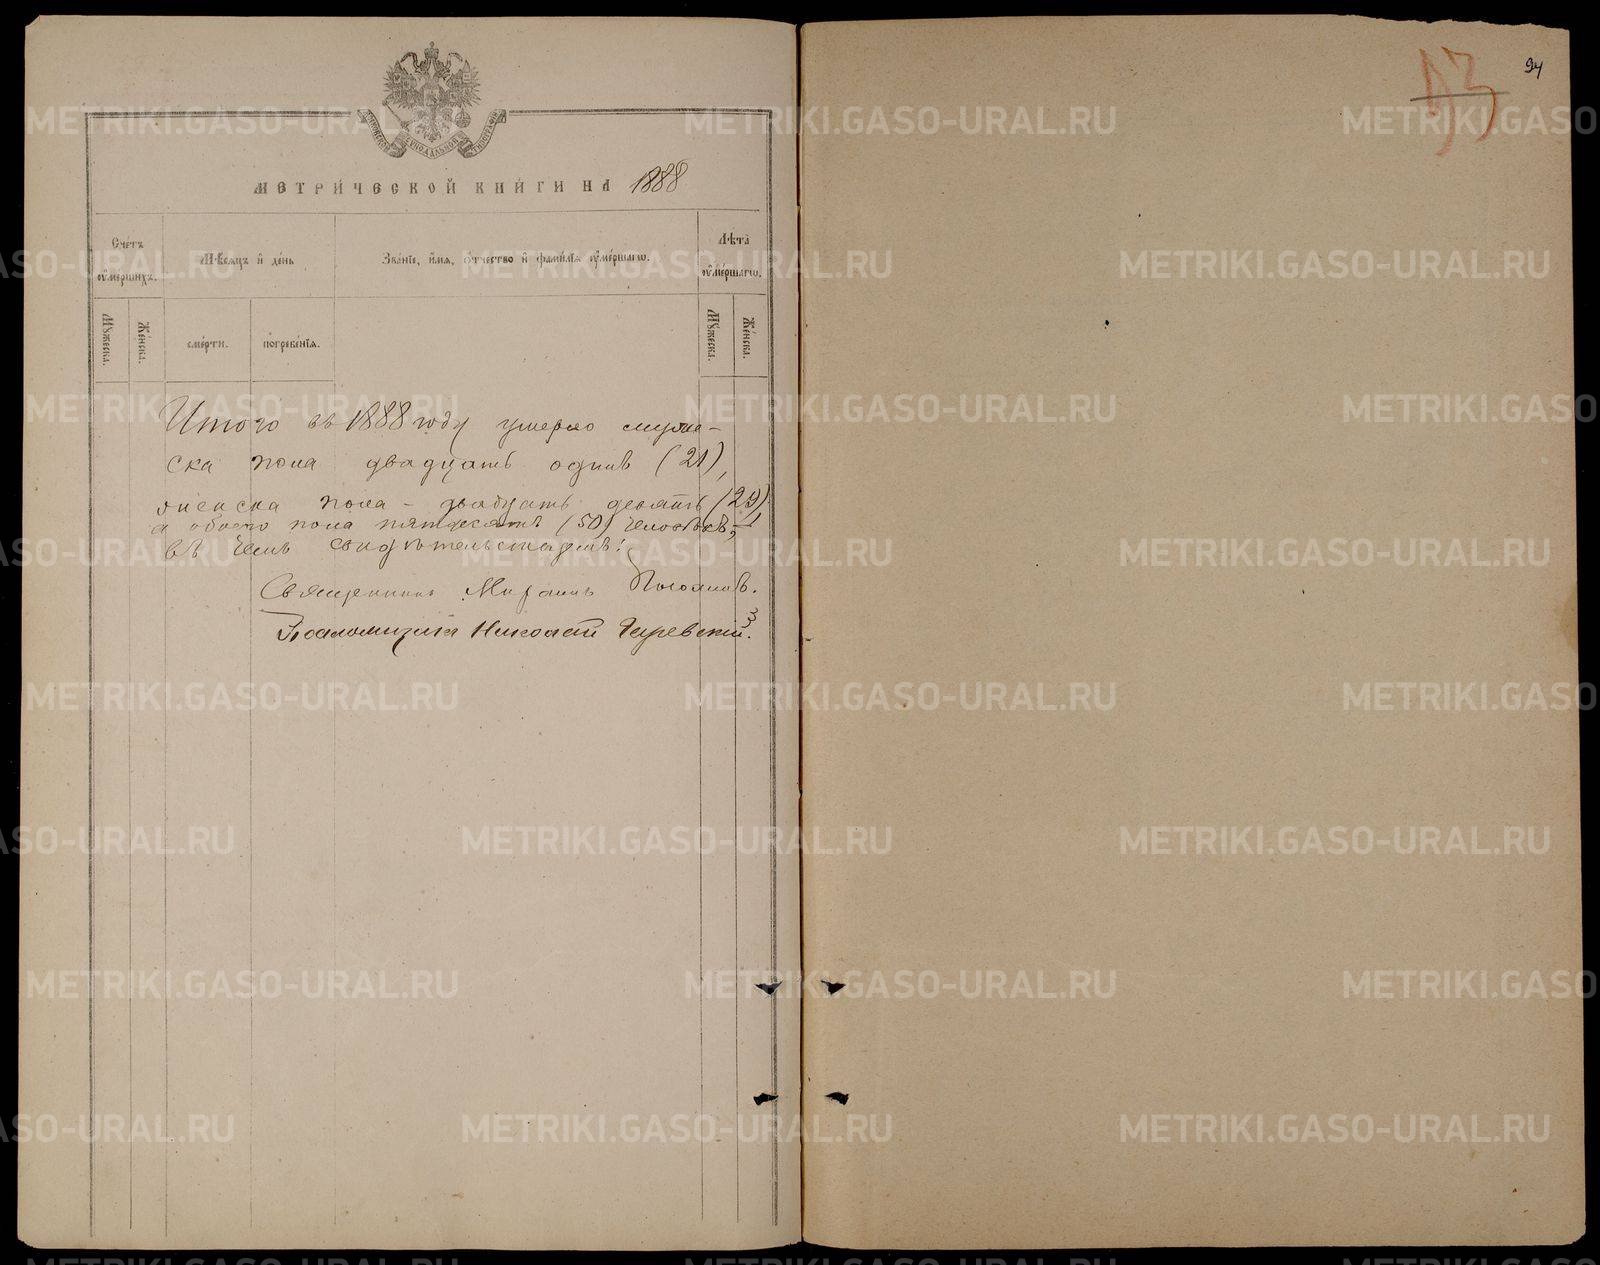 МЕТРИ́ЧЕСКОЙ КНИ́ГИ НА 1888
Счётъ ᲂу҆ме́ршихъ.
Мѣ́сяцъ и҆ де́нь
Зва́нїе, и҆́мѧ, Ѻ҆́тчество и҆ фами́лїѧ ᲂу҆ме́ршагѡ.
Лѣ́та ᲂу҆ме́ршагѡ.
Мꙋ́жеска.
Же́нска.
сме́рти.
погребе́нїѧ.
Мꙋ́жеска.
Же́нска.
Итого въ 1888 году умерло муже-
ска пола двадцать одинъ (21),
женска пола – двадцать девять (29)
а обоего пола пятьдесятъ (50) человѣкъ,
въ чемъ свидѣтельствуемъ:
Священникъ
Псаломщикъ Николай
93
94
METRIKI.GASO-URAL.RU